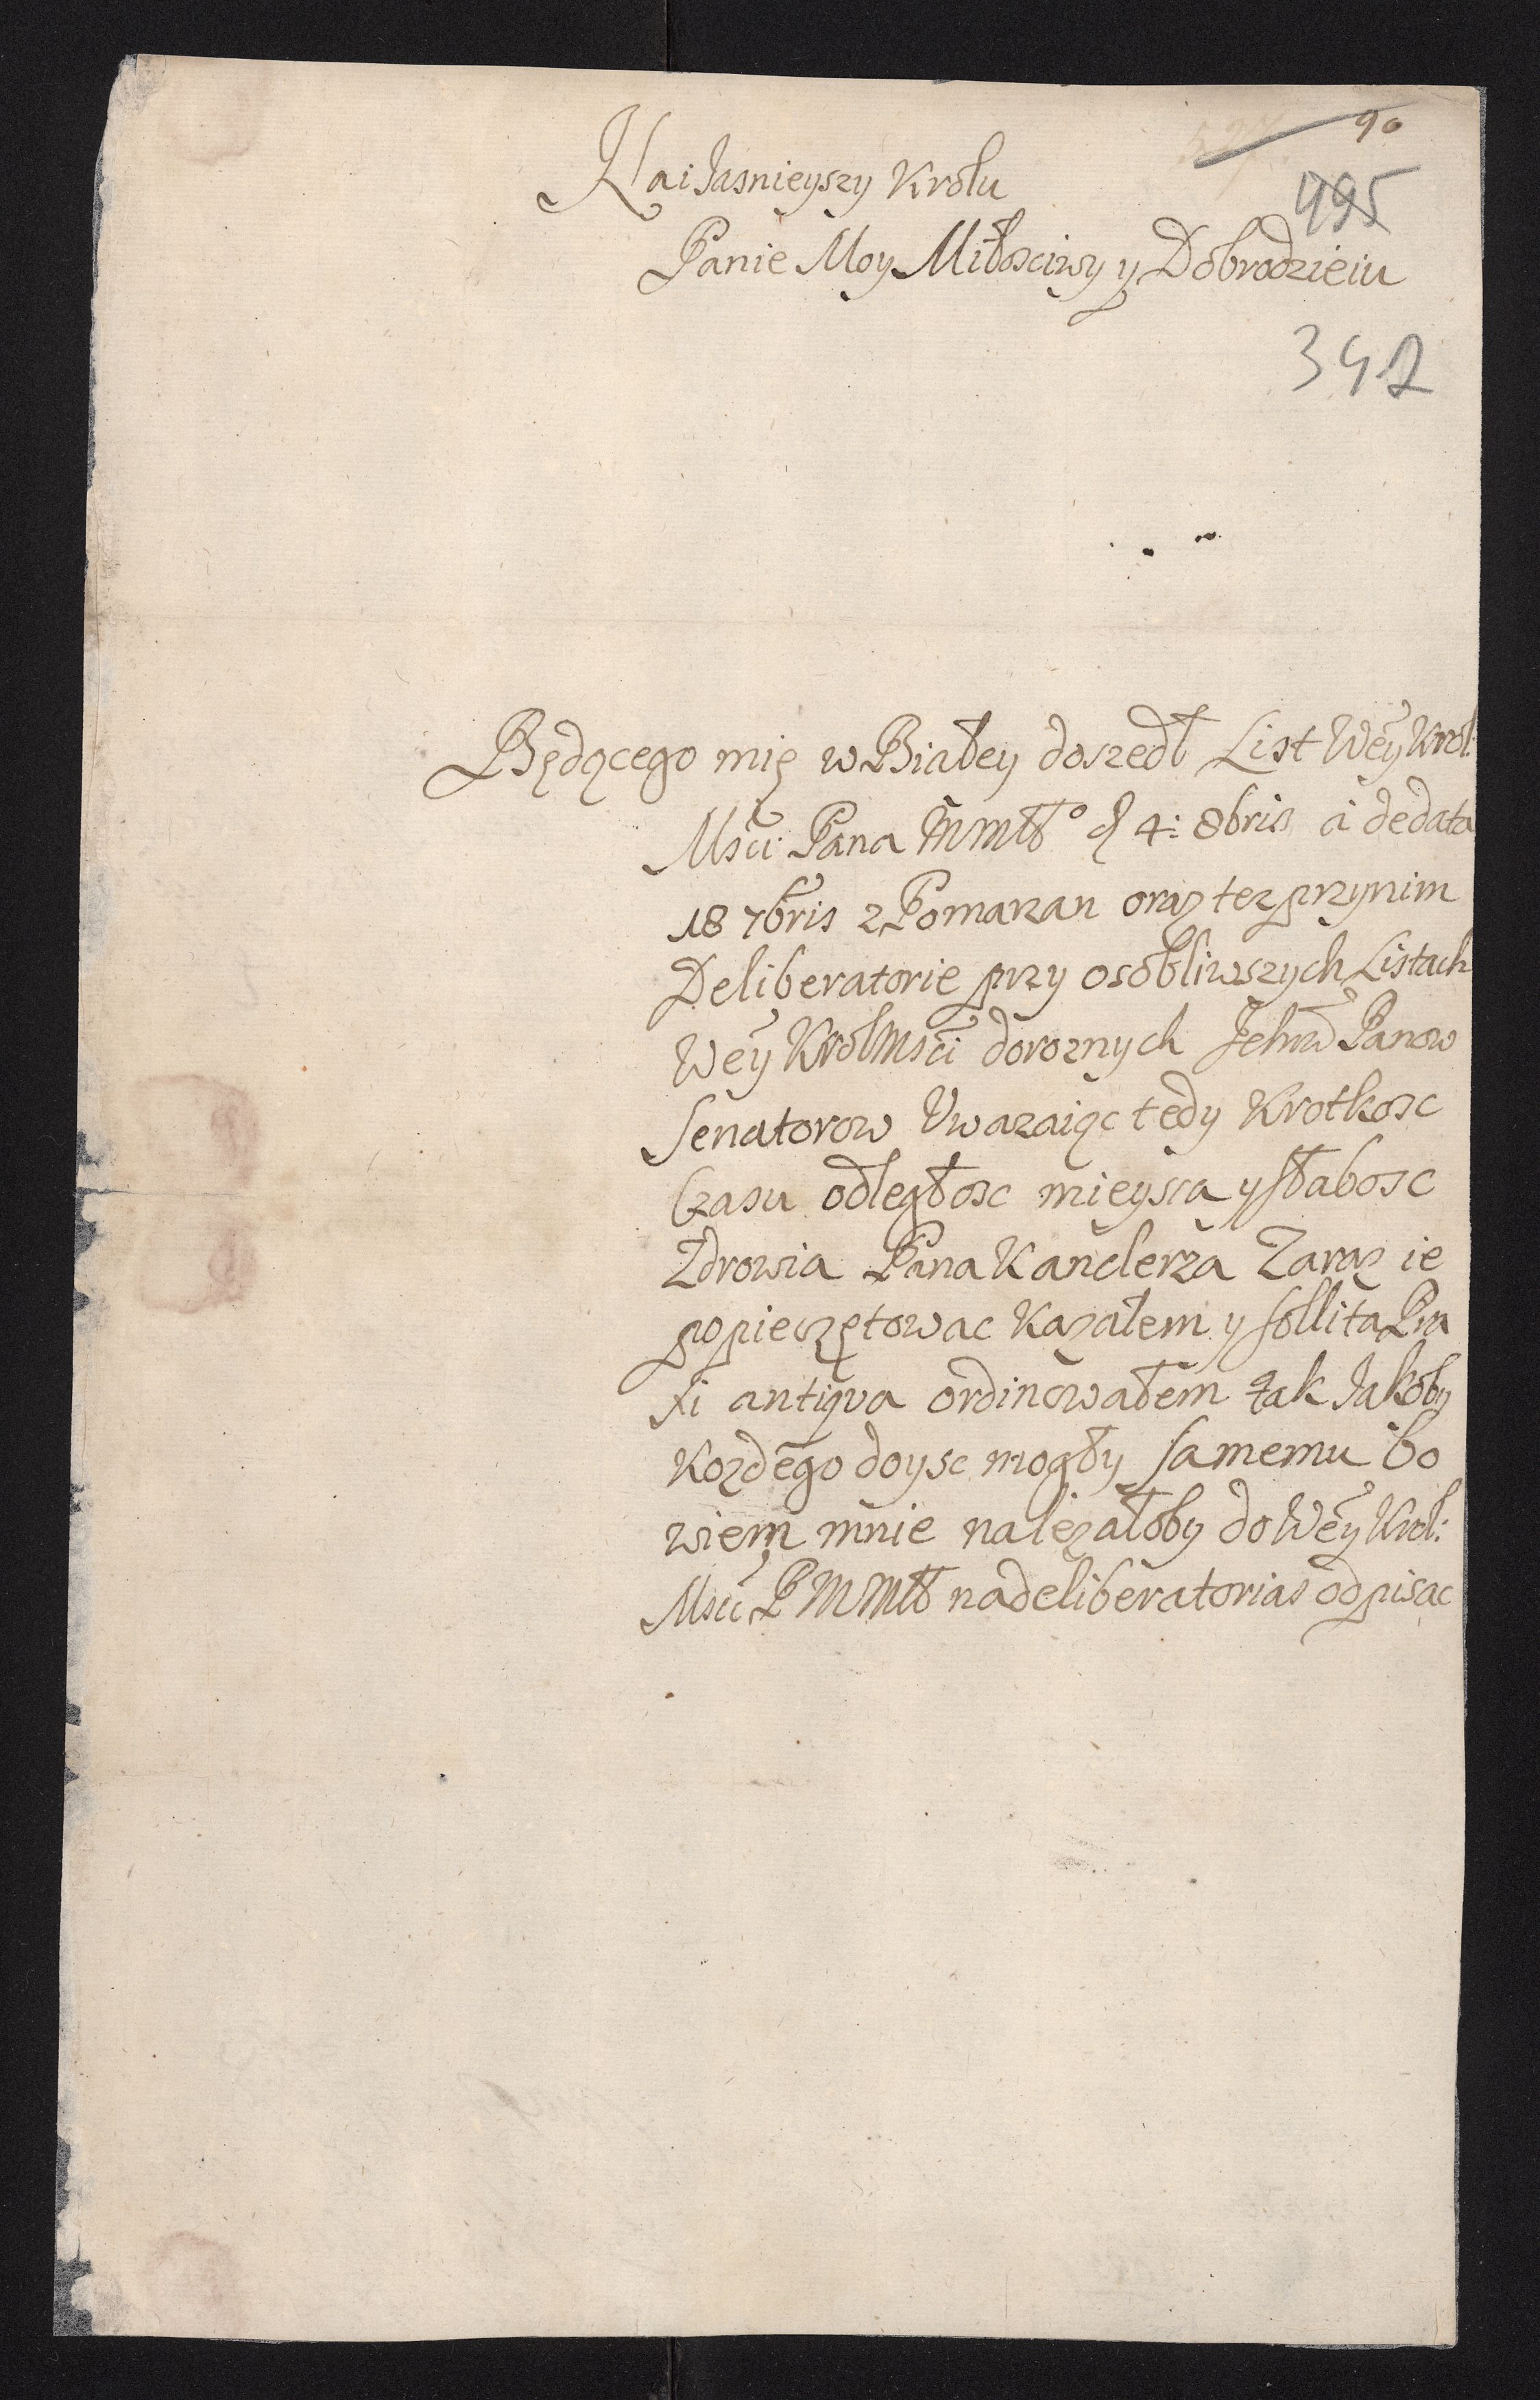 90
Nai Jasnieyszy Krolu
495
Panie Moy Miłosciwy y Dobrodzieiu
392
Będącego mię w Białey doszedł List Wey Krol:
Msci Pana MMłº d 4: 8bris a dedata
18 7bris z Pomarzan oraz tez przynim
Deliberatorie przy osobliwszych Listach
Wey KrolMsci doroznych Jchm Panow
Senatorow Uwazaiąc tedy Krotkosc
Czasu odległosc mieysca y słabosc
Zdrowia Pana Kanclerza Zaraz ie
popieczętowac Kazałem y sollita Pra
xi antiqva ordinowałem tak Jakoby
Kozdego doysc mogły samemu bo
wiem mnie nalezałoby do Wey Krol:
Msci P MMł nadeliberatorias odpisac